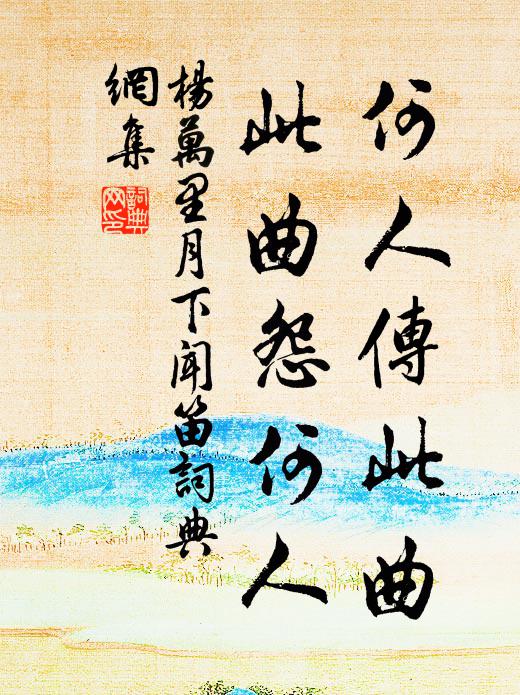 何人傳此曲
此曲怨何人
楊萬里月下聞笛詞典
網集
詞典
网印